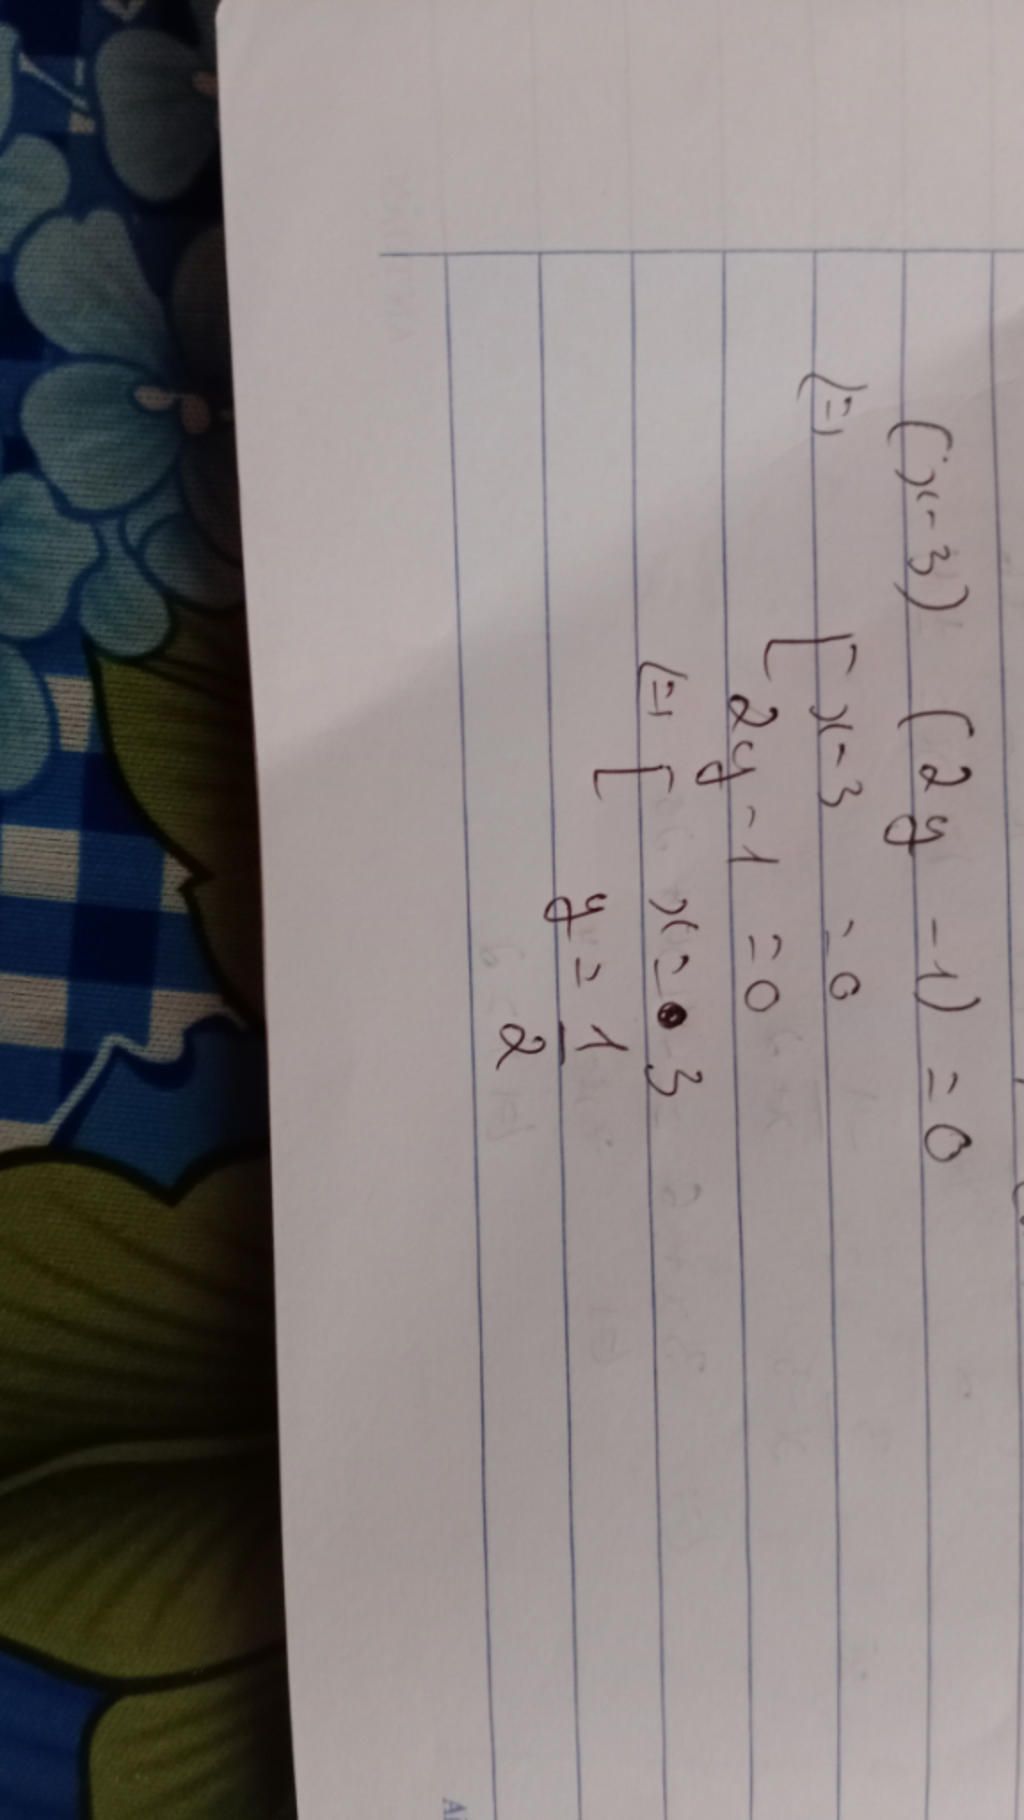 (x-3) (2y -1) = 0
(=) [ x-3 = 0
2y -1 = 0
(=) [ x = 3
y = 1/2